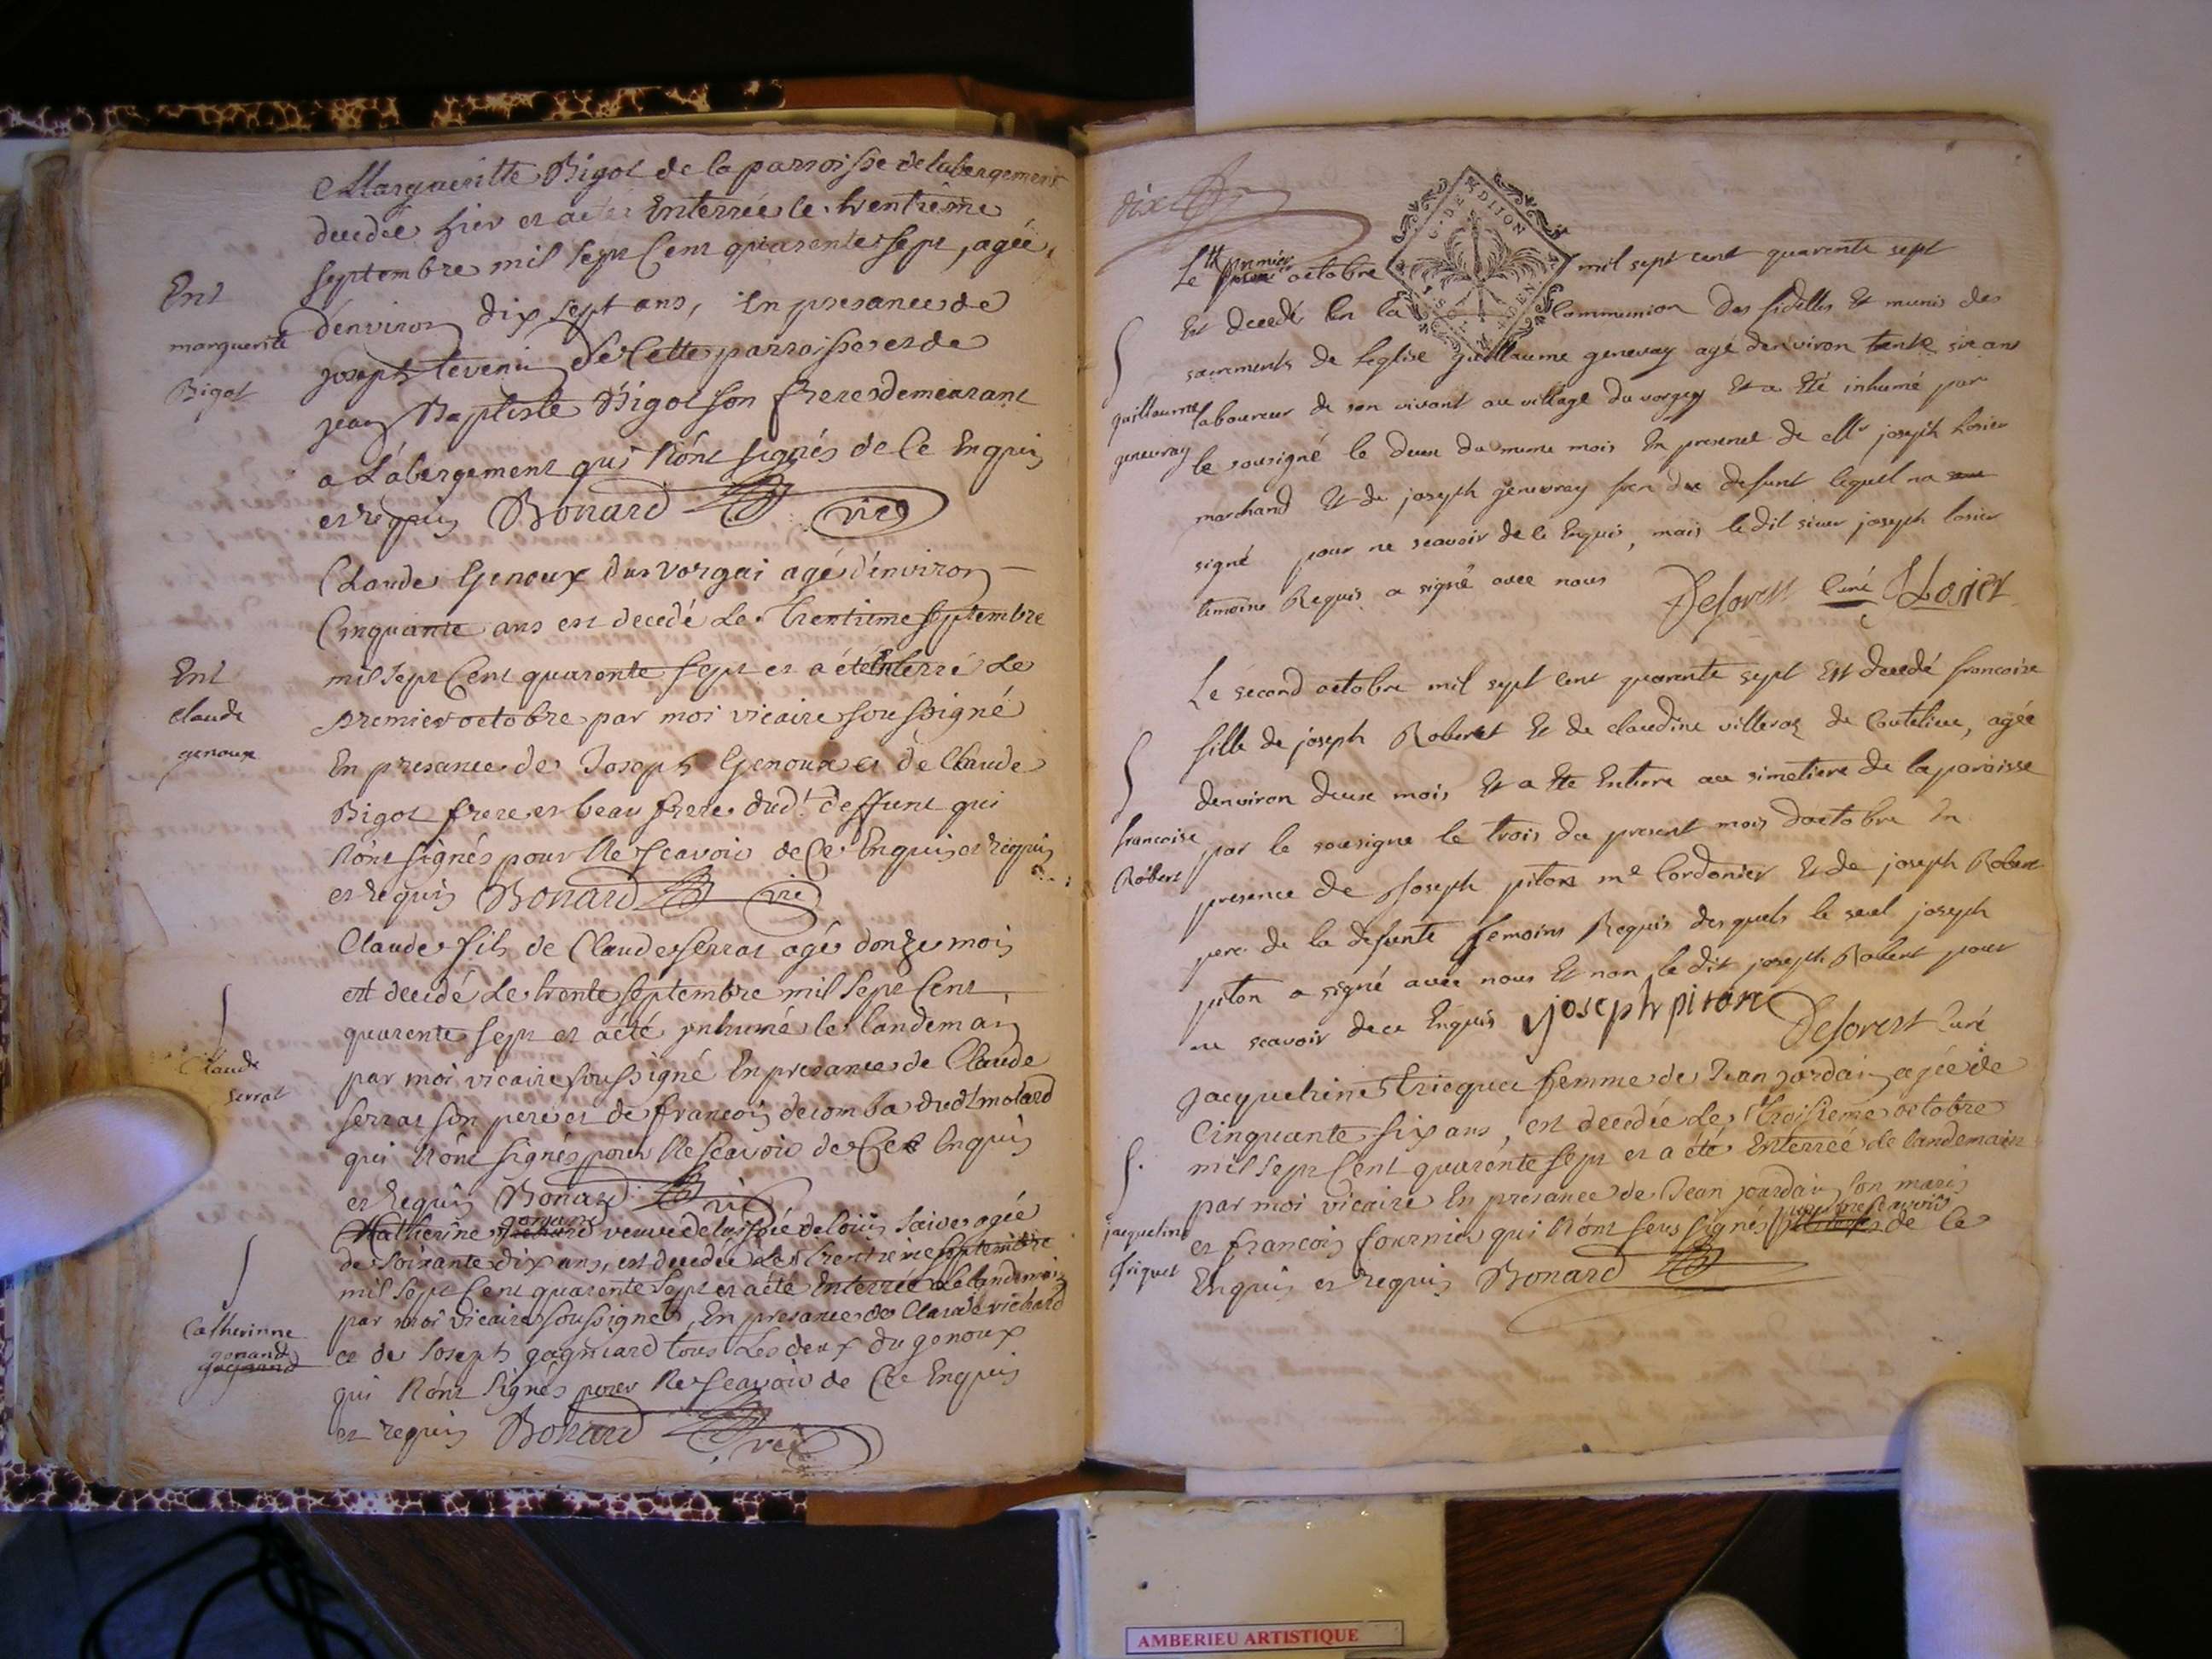 Margueritte Bigot de la parroisse de labergement
decedée hier et a été Enterrée le trentiême
septembre mil sept Cent quarente sept, agée
d'environ dix sept ans, En presance de
joseph tevenin de Cette parroisse et de
jean Baptiste Bigot son frere demeurant
a Labergement qui N'ónt signés de Ce Enquis
et requis Bonard vic
Ent
marguerite
Bigot
Claude Genoux du Vorgai agé d'environ
Cinquante ans est decedé Le trentieme septembre
mil sept Cent quarente sept et a été Enterré Le
premier octobre par moi vicaire soussigné
En presance de Joseph Genoux et de Claude
Bigot frere et beau frere dudt deffunt qui
N'ónt signés pour Ne scavoir de Ce Enquis et requis
et requis Bonard vic
Ent
claude
genoux
Claude fils de Claude serrat agé d'onze mois
est decedé Le trente septembre mil sept Cent
quarente sept et a été inhumé le landemain
par moi vicaire soussigné En presance de Claude
serrat son pere et de francois decomba dudt molard
qui N'ónt signés pour Ne scavoir de Ce Enquis
et requis Bonard vic
Claude
serrat
Katherine gonand veuve delaissée de loüis saive agée
de soixante dix ans, est decedée Le trentieme septembre
mil sept Cent quarente sept et a été Enterrée Le landemain
par moi vicaire soussigné, En presance de Claude richard
et de Joseph gagniard tous Les deux du genoux
qui N'ónt signés pour Ne scavoir de Ce Enquis
et requis Bonard vic
Catherinne
gonand
dix
C. DE DIJON
Le premier octobre mil sept cent quarente sept
Est decedé En la Communion des fidelles Et munis des
sacrements de l'eglise guillaume genevray agé d'environ trente six ans
laboureur de son vivant au village du vorgey Et a Eté inhumé par
le sousigné le deux du meme mois En presence de Mr joseph Losier
marchand Et de joseph genevray frere du defunt lequel na
signé pour ne scavoir de ce Enquis, mais ledit sieur joseph losier
temoins Requis a signé avec nous Deforest Curé JLosier
guillaume
genevray
Le second octobre mil sept cent quarente sept Est decedé francoise
fille de joseph Robert Et de claudine villeroz de Coutelieu, agée
denviron deux mois Et a Ete Enterre au simetiere de la paroisse
par le sousigne le trois du present mois doctobre En
presence de Joseph piton me Cordonier Et de joseph Robert
pere de la defunte temoins Requis desquels le seul joseph
piton a signé avec nous Et non le dit joseph Robert pour
ne scavoir de ce Enquis joseph piton Deforest Curé
francoise
Robert
jacqueline triquet femme de Jean jordain agée de
Cinquante six ans, est decedée Le troisieme octobre
mil sept Cent quarénte sept et a été Enterreé Le landemain
par moi vicaire En presance de Jean jourdain son mari
et francois fournier qui N'ónt sous signés pour Ne scavoir de Ce
Enquis et requis Bonard
jaqueline
triquet
AMBERIEU ARTISTIQUE